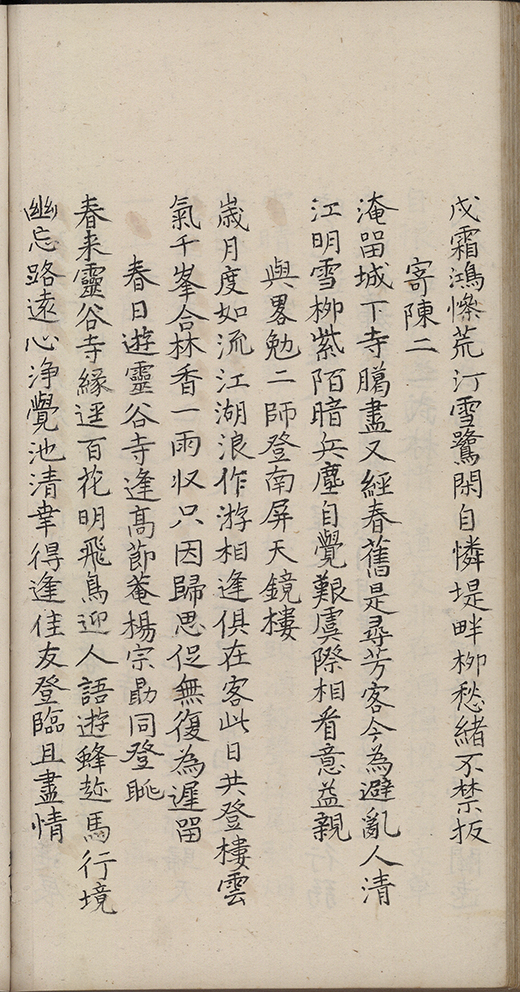 戍霜鴻慘荒汀雪鷺閑自憐堤畔栁愁緒不禁扳
寄陳二
淹留城下寺臈盡又經春舊是尋芳客今為避亂人清
江明雪栁紫陌暗兵塵自覺艱虞際相看意益親
與畧勉二師登南屏天鏡樓
嵗月度如流江湖浪作游相逢俱在客此日共登樓雲
氣千峯合林香一雨収只因歸思促無復為遲留
春日遊靈谷寺逢髙節菴楊宗勛同登眺
春来靈谷寺緣逕百花明飛鳥迎人語遊蜂趂馬行境
幽忘路遠心淨覺池清幸得逢佳友登臨且盡情